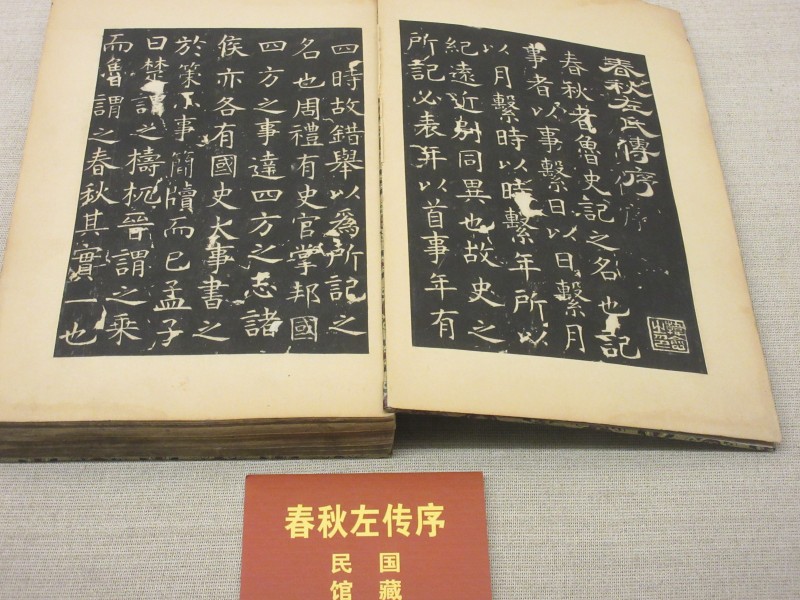 春秋左氏傳序 序
春秋者魯史記之名也記
事者以事繫日以日繫月
以月繫時以時繫年所以
紀遠近別同異也故史之
所記必表年以首事年有
四時故錯舉以爲所記之
名也周禮有史官掌邦國
四方之事達四方之志諸
侯亦各有國史大事書之
於策小事簡牘而已孟子
曰楚謂之檮杌晉謂之乘
而魯謂之春秋其實一也
春秋左传序
民国
馆藏